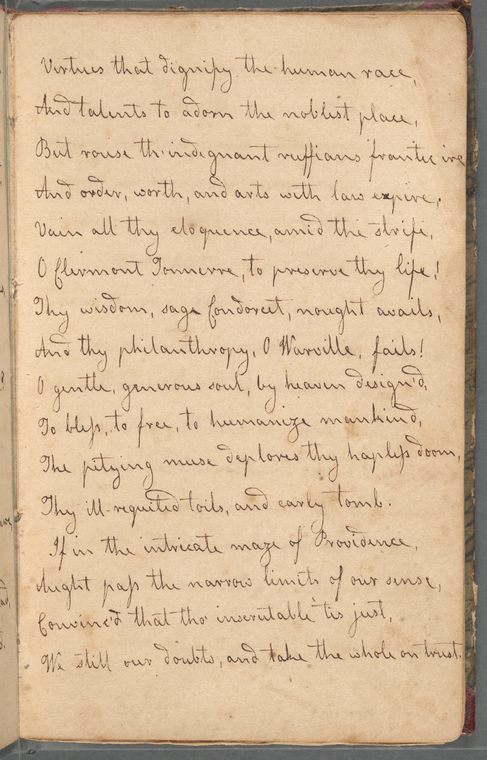 Virtues that dignify the human race,
And talents to adorn the noblest place,
But rouse th' indignant ruffians frantic ire
And order, worth, and arts with law expire,
Vain all thy eloquence, amid the strife,
O Clermont Tonnerre, to preserve thy life!
Thy wisdom, sage Condorcet, nought avails,
And thy philanthropy, O Warville, fails!
O gentle, generous soul, by heaven design'd,
To bless, to free, to humanize mankind,
The pitying muse deplores thy hapless doom,
Thy ill-requited toils, and early tomb.
If in the intricate maze of Providence,
Aught pass the narrow limits of our sense,
Convinc'd that tho' inscrutable 'tis just,
We still our doubts, and take the whole on trust.